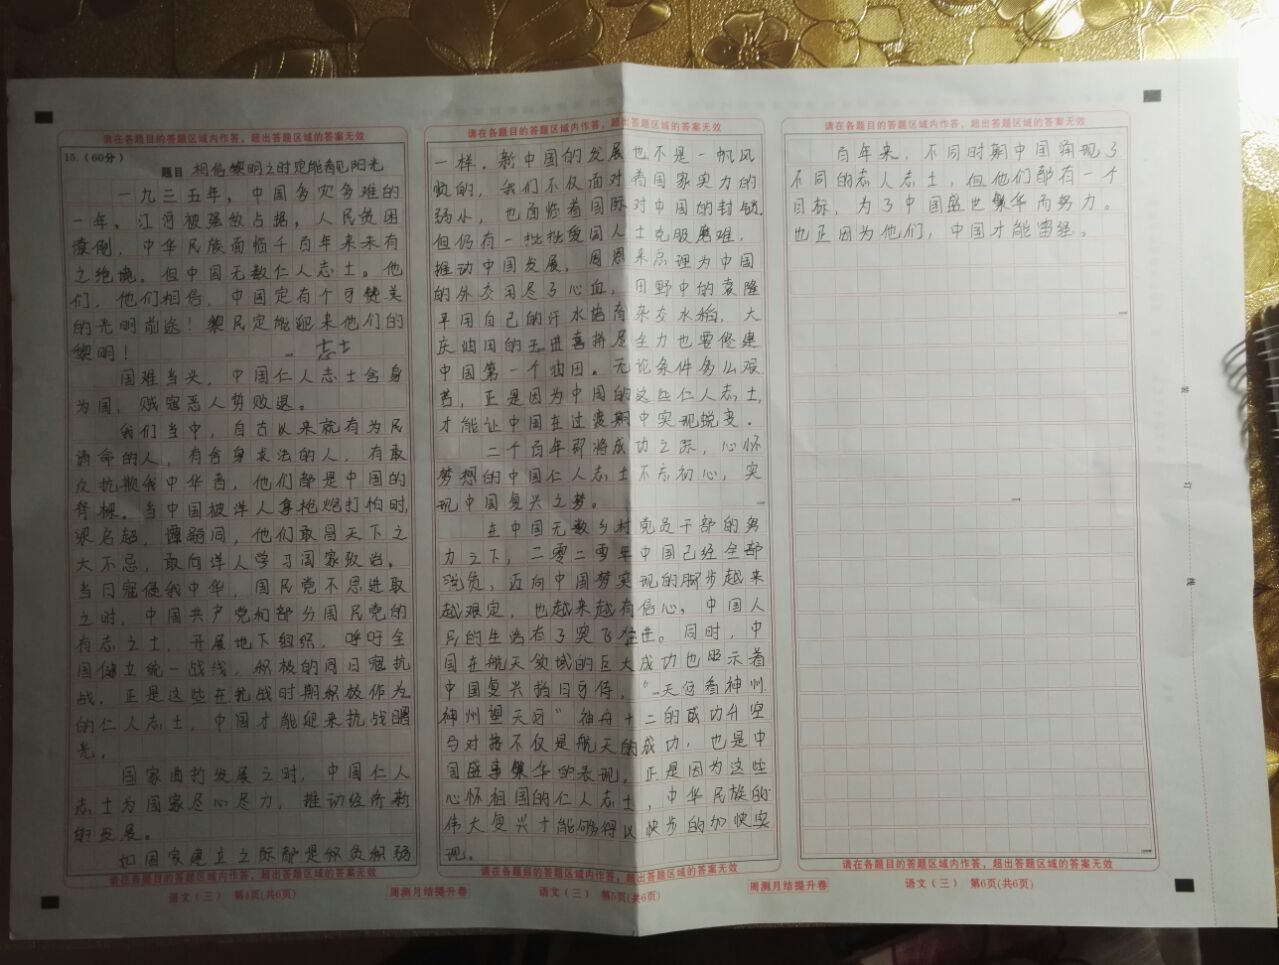 请在各题目的答题区域内作答，超出答题区域的答案无效
15.（60分）
题目 相信黎明之时定能看见阳光
一九三五年，中国多灾多难的
一年，江河被强敌占据，人民贫困
潦倒，中华民族面临千百年来未有
之绝境。但中国无数仁人志士。他
们，他们相信，中国定有个可赞美
的光明前途！黎民定能迎来他们的
黎明！
志士
国难当头，中国仁人志士舍身
为国，贼寇恶人势败退。
我们当中，自古以来就有为民
请命的人，有舍身求法的人，有敢
反抗欺我中华者，他们都是中国的
脊梁。当中国被洋人拿枪炮打怕时，
梁启超，谭嗣同，他们敢冒天下之
大不忌，敢向洋人学习国家政治，
当日寇侵我中华，国民党不思进取
之时，中国共产党和部分国民党的
有志之士，开展地下组织，呼吁全
国建立统一战线，积极的同日寇抗
战，正是这些在抗战时期积极作为
的仁人志士，中国才能迎来抗战曙
光。
国家曲折发展之时，中国仁人
志士为国家尽心尽力，推动经济新
的发展。
如国家建立之际都是积贫积弱
请在各题目的答题区域内作答，超出答题区域的答案无效
语文（三） 第4页(共6页)
周测月结提升卷
请在各题目的答题区域内作答，超出答题区域的答案无效
一样。新中国的发展也不是一帆风
顺的，我们不仅面对着国家实力的
弱小，也面临着国际对中国的封锁，
但仍有一批批爱国人士克服磨难，
推动中国发展，周恩来总理为中国
的外交用尽了心血，田野中的袁隆
平用自己的汗水培育杂交水稻，大
庆油田的王进喜拼尽全力也要修建
中国第一个油田。无论条件多么艰
苦，正是因为中国的这些仁人志士，
才能让中国在过渡期中实现蜕变。
二个百年即将成功之际，心怀
梦想的中国仁人志士不忘初心，实
现中国复兴之梦。
在中国无数乡村党员干部的努
力之下，二零二零年中国已经全部
脱贫，迈向中国梦实现的脚步越来
越艰定，也越来越有信心，中国人
民的生活有了突飞。同时，中
国在航天领域的巨大成功也昭示着
中国复兴指日可待，“一天问看神州，
神州望天问”神舟十二的成功升空
与对接不仅是航天的成功，也是中
国盛事繁华的表现。正是因为这些
心怀祖国的仁人志士，中华民族的
伟大复兴才能够得以快步的加快实
现。
请在各题目的答题区域内作答，超出答题区域的答案无效
语文（三） 第5页(共6页)
周测月结提升卷
请在各题目的答题区域内作答，超出答题区域的答案无效
百年来，不同时期中国涌现了
不同的志人志士，但他们都有一个
目标，为了中国盛世繁华而努力。
也正因为他们，中国才能富强。
请在各题目的答题区域内作答，超出答题区域的答案无效
语文（三） 第6页(共6页)
装
订
线